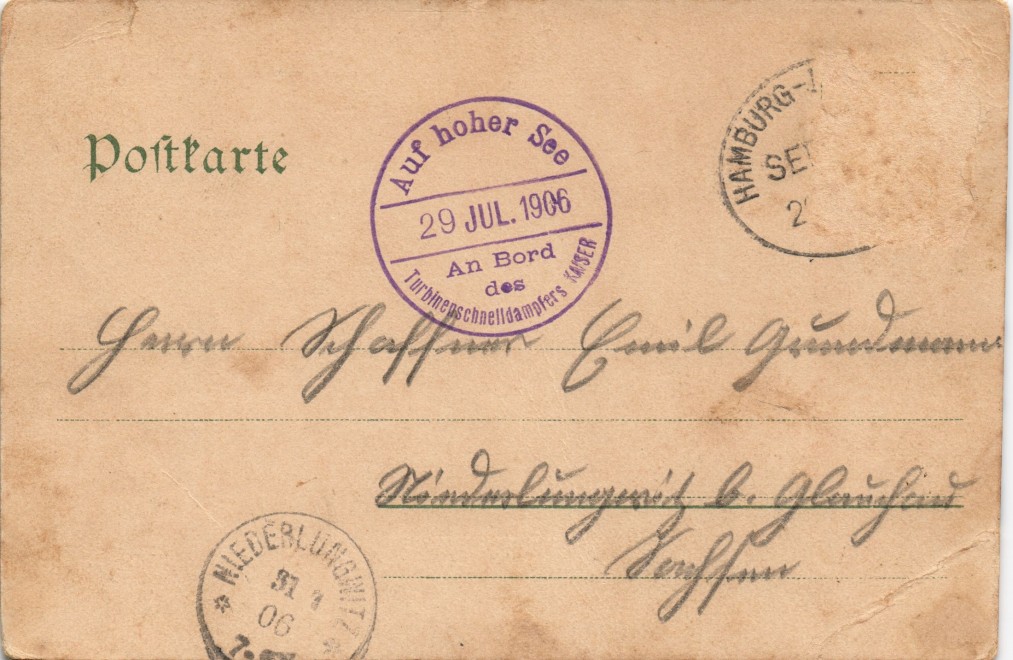 Postkarte
Auf hoher See
29 JUL. 1906
An Bord
des
Turbinenschnelldampfers KAISER
HAMBURG-
Herrn Schaffner Emil Grundmann
Niederlungwitz b. Glauchau
Sachsen
NIEDERLUNGWITZ
31
06